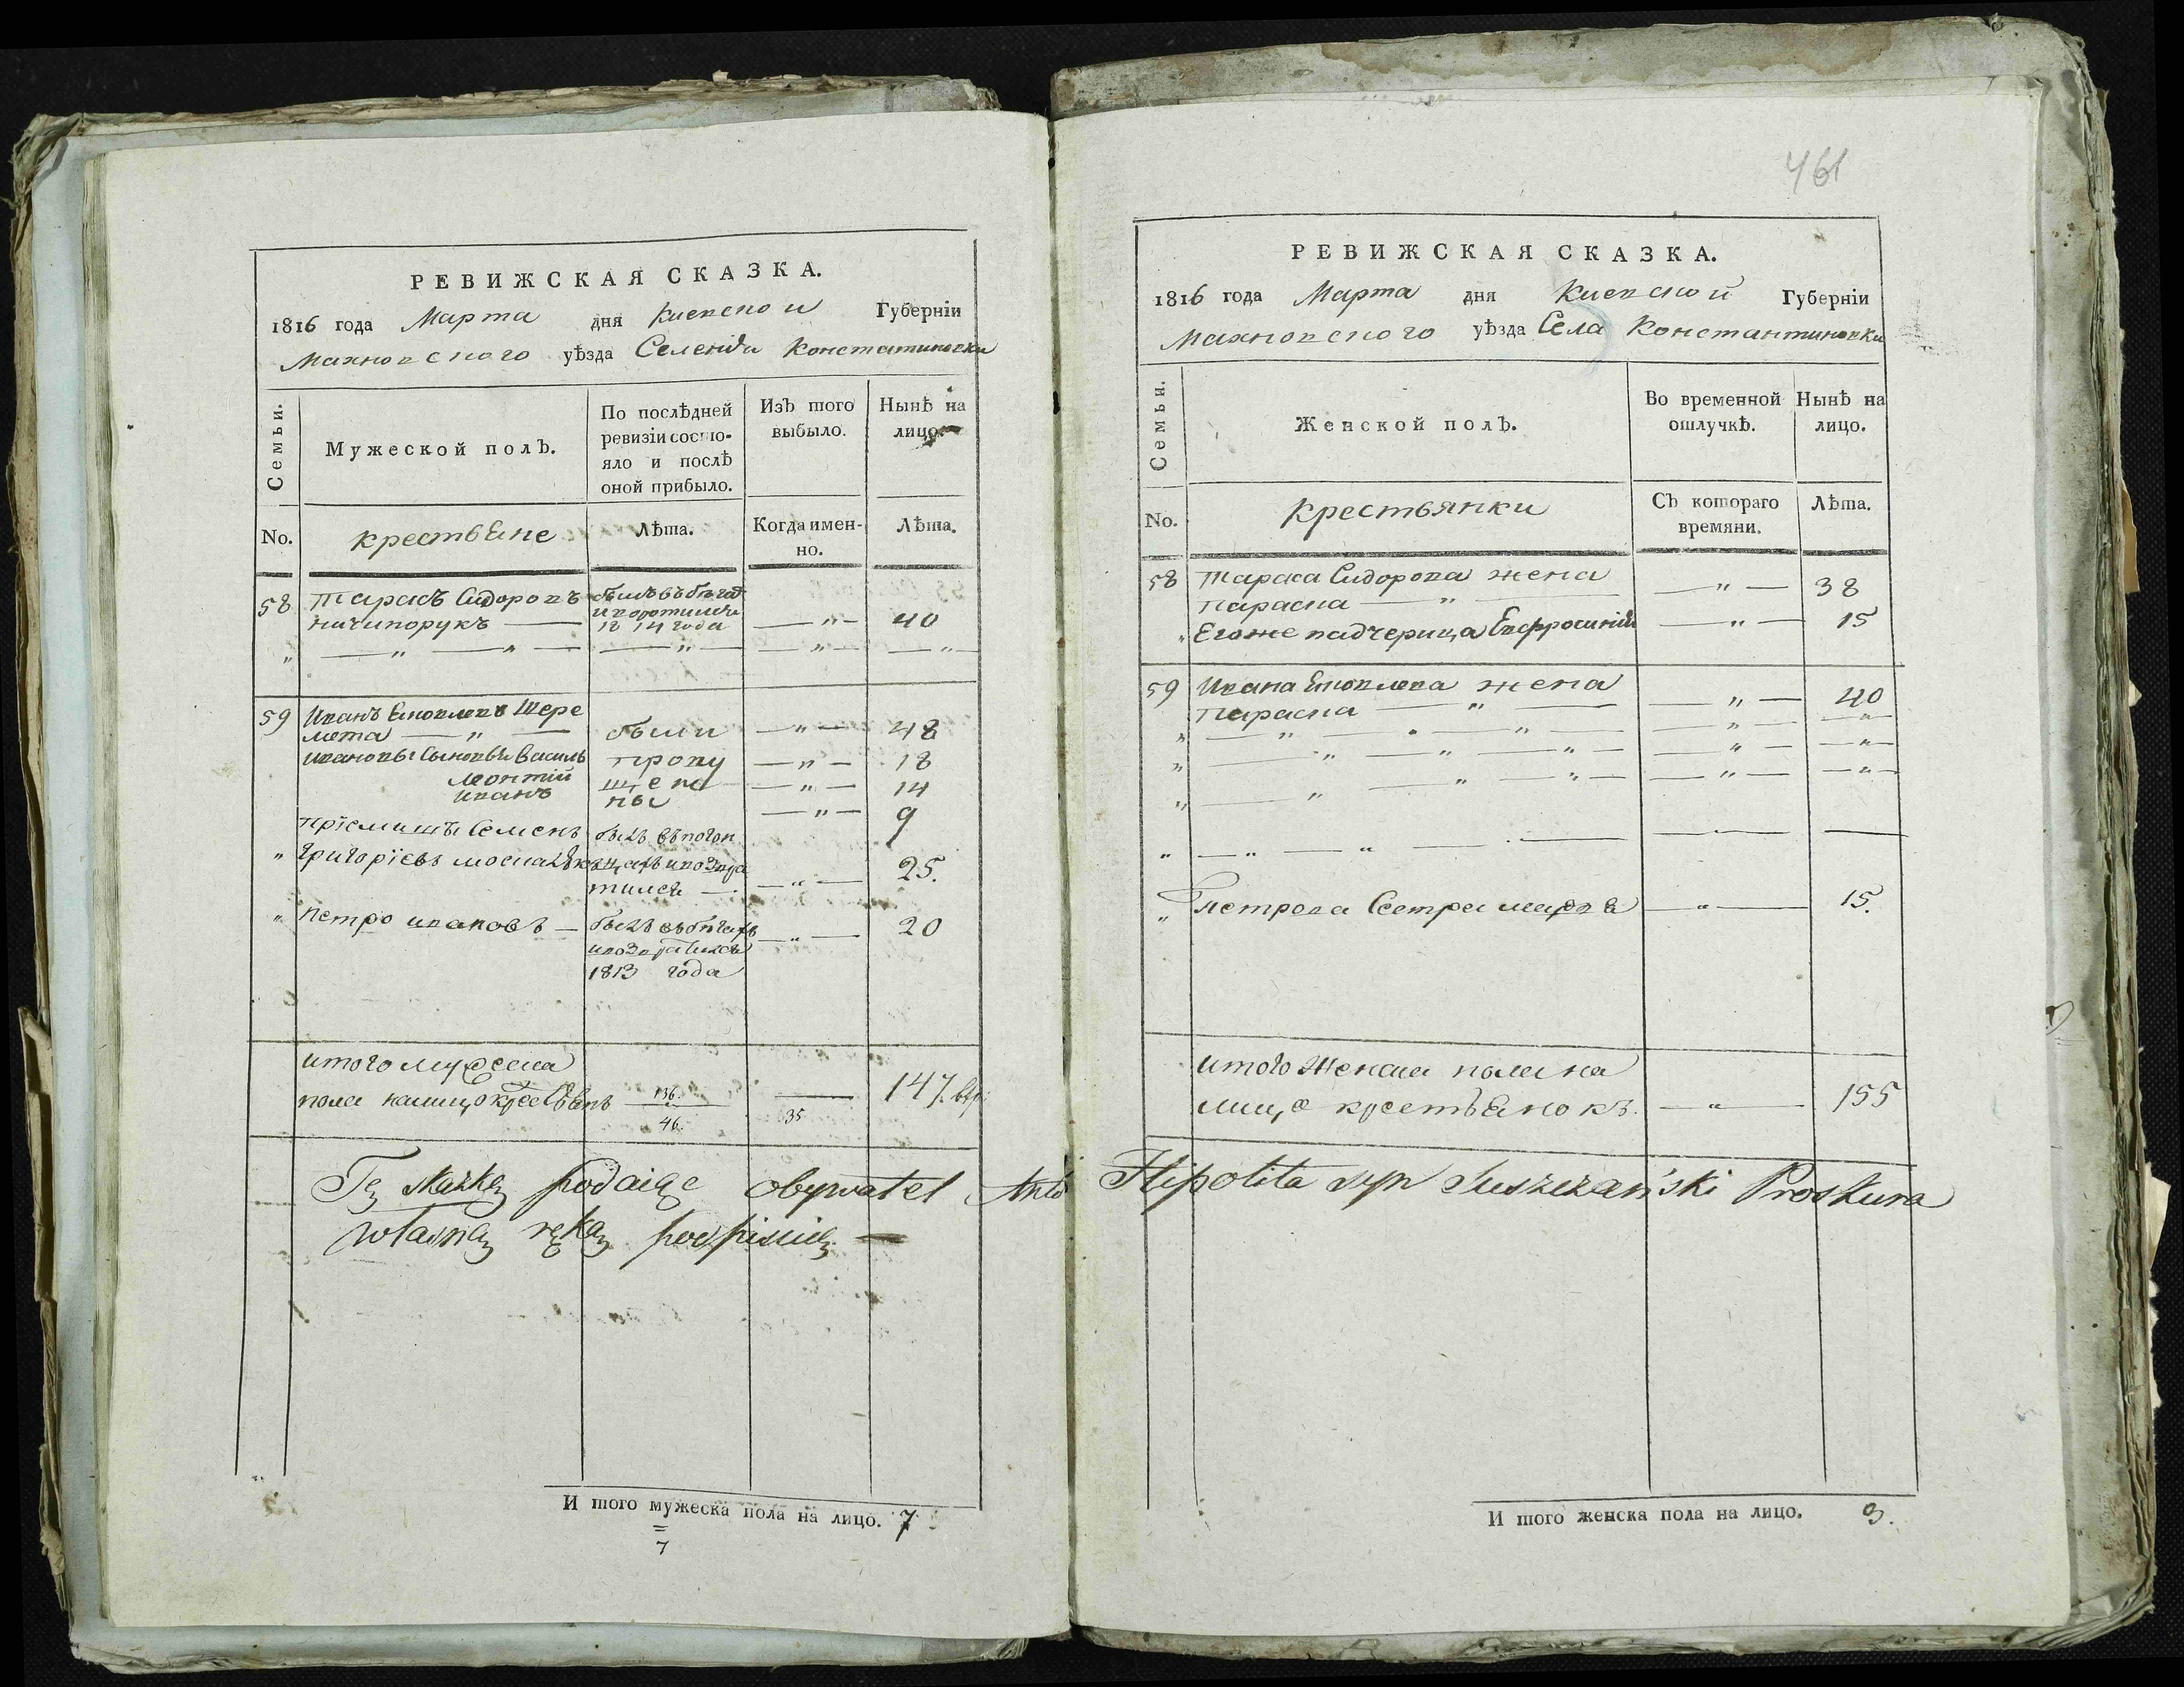 РЕВИЖСКАЯ СКАЗКА.
1816 года Марта дня Киевской Губерніи
Махновского уѣзда Селенія Константиновки
Семьи.
Мужеской полъ.
По послѣдней ревизіи состояло и послѣ оной прибыло.
Изъ того выбыло.
Нынѣ на лицо.
No.
крестьяне
Лѣта.
Когда именно.
Лѣта.
58 Тарасъ Сидоровъ былъ въ бѣгахъ
ничипорукъ 1814 года — " — 40
" — " — " — — " — — " — — " —
59 Иванъ Шере
мета — " — были — " — 48
Ивановы Сыновья Василь пропу — " — 18
Леонтій щен — " — 14
Иванъ ны — " — 9
Пріемышъ Семенъ былъ
" Григоріевъ
— " — 25.
" Петро Ивановъ — былъ въ бѣгахъ — " — 20
и возвратился
1813 года
Итого мужеска
пола на лицо крестьянъ 136. 46. — 35 147.
Tę skazkę podaiąc obywatel
własną ręką podpisuię —
И того мужеска пола на лицо. 7
7
461
РЕВИЖСКАЯ СКАЗКА.
1816 года Марта дня Киевской Губерніи
Махновского уѣзда Села Константиновки
Семьи.
Женской полъ.
Во временной отлучкѣ.
Нынѣ на лицо.
No.
Крестьянки
Съ котораго времяни.
Лѣта.
58 Тараса Сидорова жена
Параска — " — — " — 38
" Егоже падчерица Евфросинія — " — 15
59 Ивана жена
Параска — " — — " — 40
" — " — " — " — — " — — " —
" — " — " — " — — " — — " —
" — " — " — " — — " — — " —
" — " — " — — — —
" Петрова Сестра — " — 15.
Итого Женска пола на
лицо крестьянокъ. — " — 155
Hipolita syn Suszczański Proskura
И того женска пола на лицо. 3.